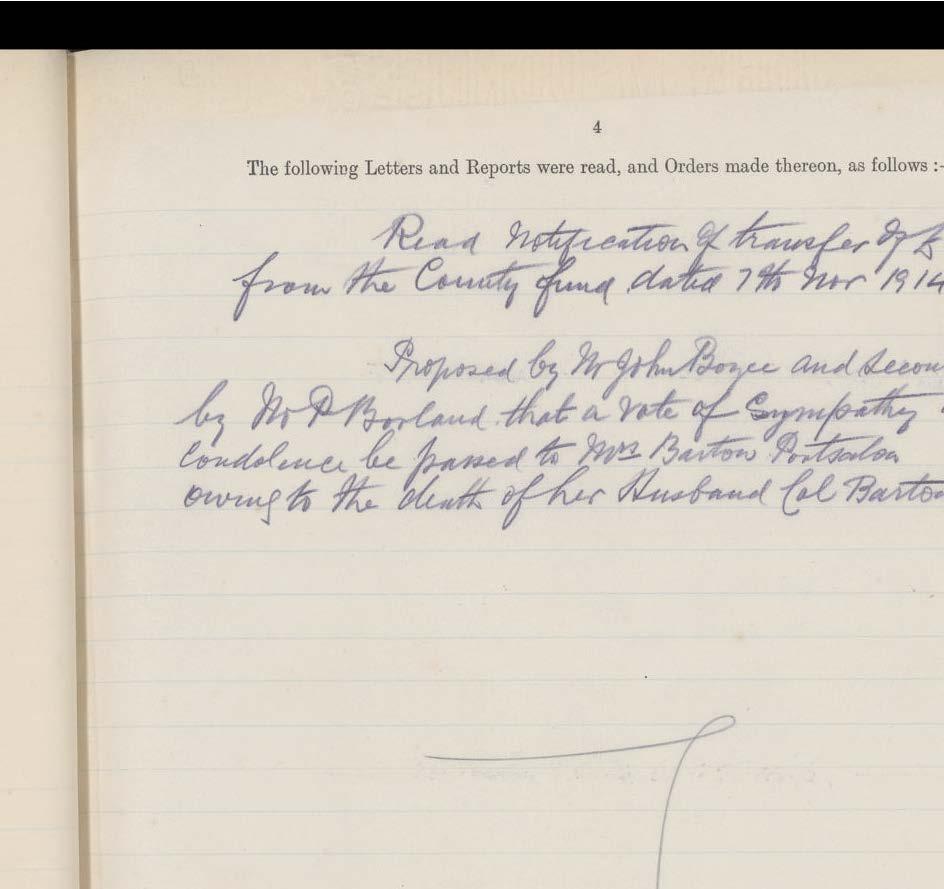 4
The following Letters and Reports were read, and Orders made thereon, as follows :-
Read Notification of transfer of £
from the County fund dated 7th Nov 1914
Proposed by Mr John Boyce and Secon
by Mr P Borland that a vote of Sympathy
Condolence be passed to Mrs Barton Portsalon
owing to the death of her Husband Col Barton